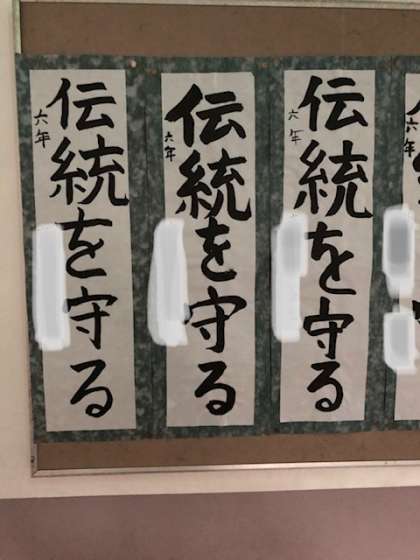 伝統を守る
六年
伝統を守る
六年
伝統を守る
六年
六年